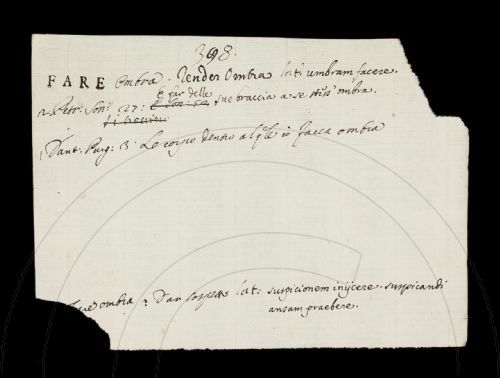 398.
FARE Ombra. Render Ombra lat: umbram facere.
a Petr: Son: 27: E far delle sue braccia a se stess' ombra.
Dant. Purg: 3. Lo corpo dentro al q̃le io facea ombra
ombra Dar sospetto lat: suspicionem inijcere. suspicandi
ansam praebere.